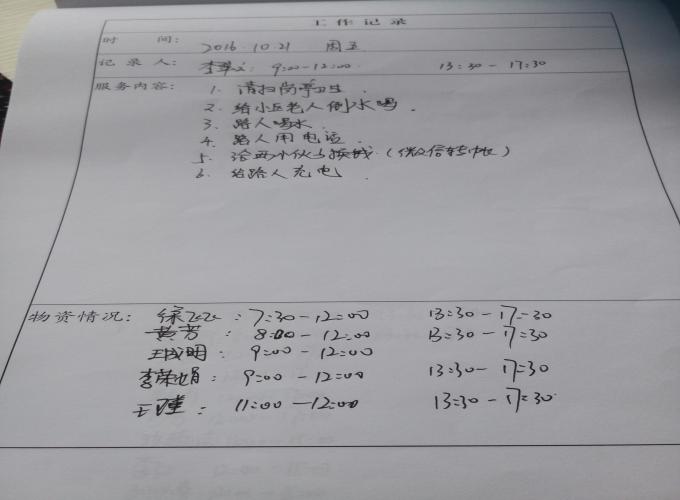 工作记录
时 间: 2016.10.21 周五
记录人: 李翠文: 9:00-12:00 13:30-17:30
服务内容: 1. 清扫岗亭卫生.
2. 给小区老人倒水喝.
3. 路人喝水.
4. 路人用电话
5. 给两小伙子换钱(微信转帐)
6. 给路人充电.
物资情况: 徐飞飞: 7:30-12:00 13:30-17:30
黄芳: 8:00-12:00 13:30-17:30
王明: 9:00-12:00
李荣娟: 9:00-12:00 13:30-17:30
王: 11:00-12:00 13:30-17:30